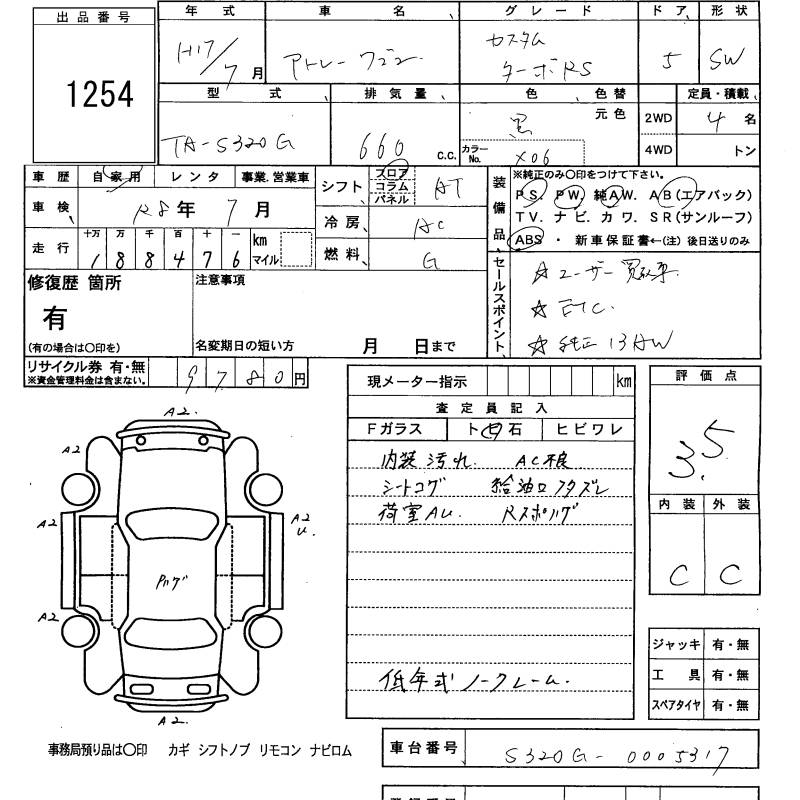 出品番号
1254
年式 車名 グレード ドア 形状
H17/7月 アトレーワゴン カスタム ターボRS 5 SW
型式 排気量 色 色替 元色 2WD 4WD 定員・積載
TA-S320G 660 c.c. 黒 4名
カラーNo. X06 トン
車歴 自家用 レンタ 事業.営業車
車検 R8年 7月
走行 十万 万 千 百 十 一 km マイル
1 8 8 4 7 6
シフト フロア コラム パネル AT
冷房 AC
燃料 G
装備品
※純正のみ〇印をつけて下さい。
PS. PW. 純AW. AB(エアバック)
TV. ナビ. カワ. SR(サンルーフ)
ABS ・ 新車保証書←(注) 後日送りのみ
セールスポイント
☆ユーザー買取車
☆ETC.
☆純正13AW
修復歴 箇所
有
(有の場合は〇印を)
注意事項
名変期日の短い方 月 日まで
リサイクル券 有・無
※資金管理料金は含まない。
9780円
現メーター指示 km
査定員記入
Fガラス ト日石 ヒビワレ
内装汚れ. AC不良
シートコゲ 給油口フタズレ
荷室AU. Rスポハゲ
低年式ノークレーム.
評価点
3.5
内装 外装
C C
ジャッキ 有・無
工具 有・無
スペアタイヤ 有・無
A2.
A2
A2
A2 U.
Pハゲ
A2
A2.
事務局預り品は〇印 カギ シフトノブ リモコン ナビロム
車台番号 S320G-0005317